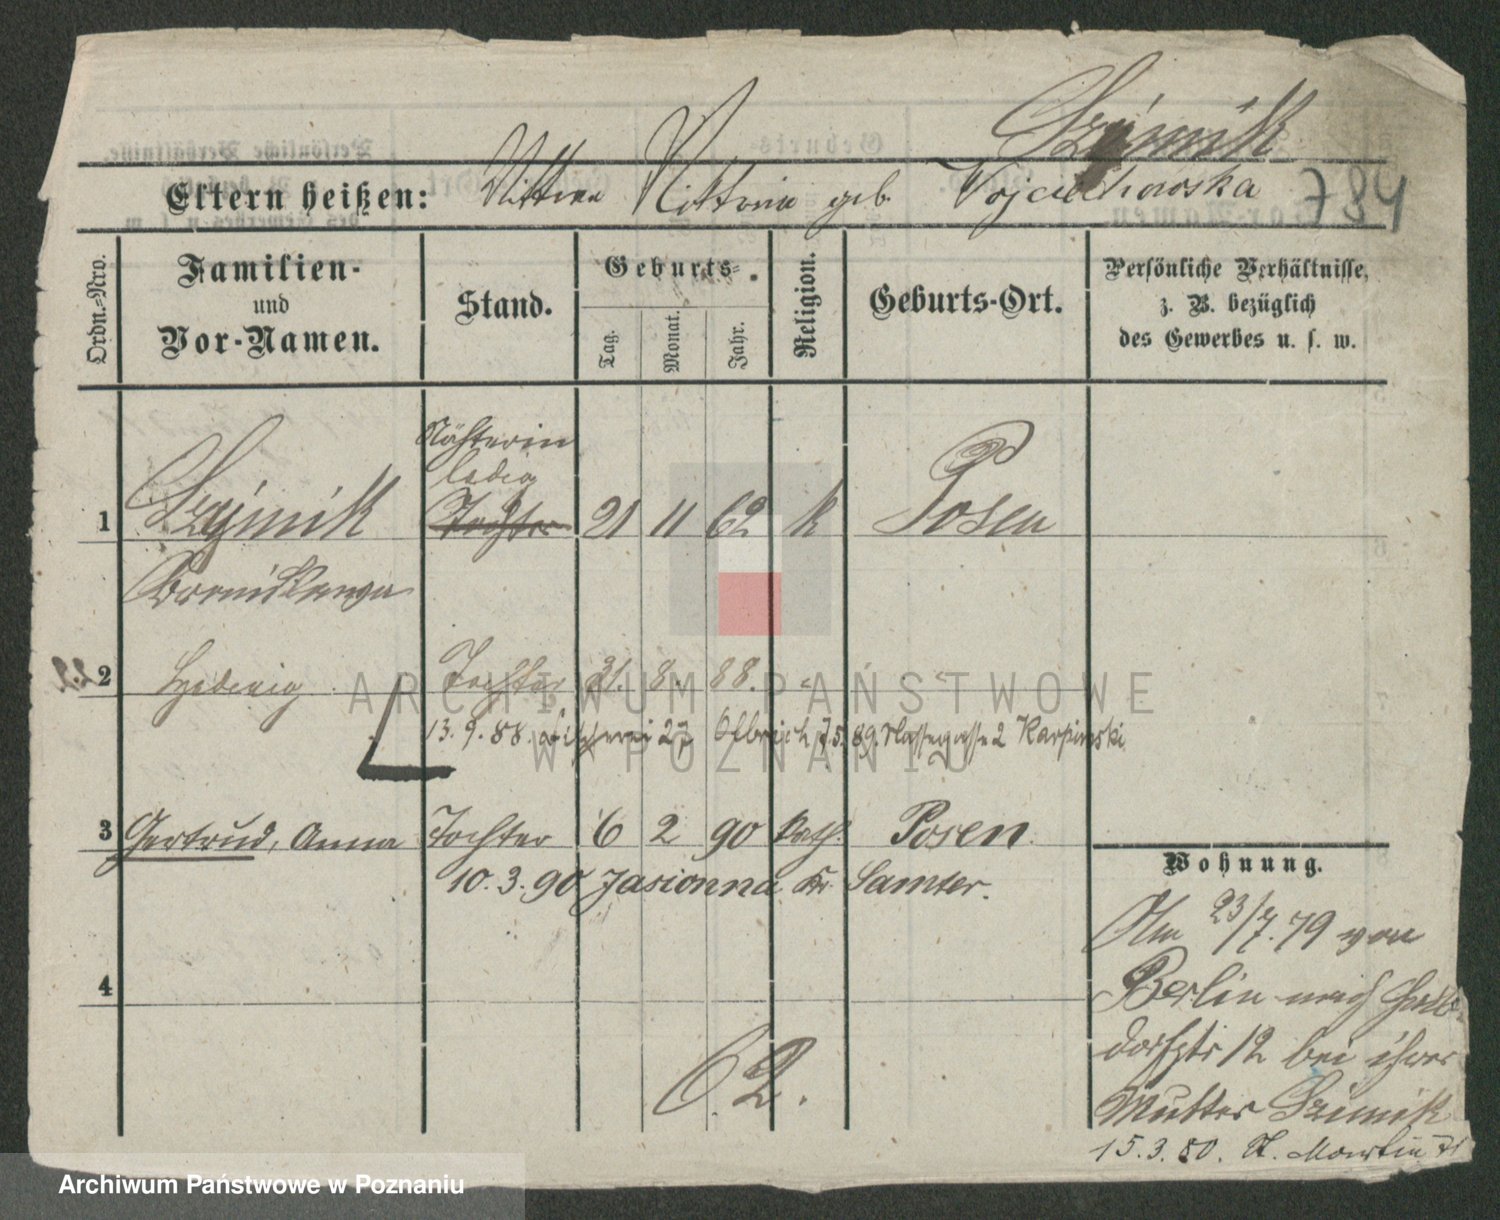 Szimnik
Eltern heißen: Wittwe Viktoria geb. Wojciechowska 784
Ordn.-Nro.
Familien-
und
Vor-Namen.
Stand.
Geburts-
Tag.
Monat.
Jahr.
Religion.
Geburts-Ort.
Persönliche Verhältnisse,
z. B. bezüglich
des Gewerbes u. s. w.
Nähterin
ledig
1 Szymnik Tochter 21 11 62 k Posen
Bronislawa
2 Hedwig Tochter 31. 8. 88. "
13. 9. 88. Fischerei 27 Olbrich 7.5.89. Karpinski
3 Gertrud, Anna Tochter 6 2 90 kath. Posen
10. 3. 90 Jasionna Kr. Samter.
4
62.
Wohnung.
Am 23/7. 79 von
Berlin nach Halb-
dorfstr 12 bei ihrer
Mutter Szimnik
15. 3. 80. St. Martin 71
ARCHIWUM PAŃSTWOWE
W POZNANIU
Archiwum Państwowe w Poznaniu